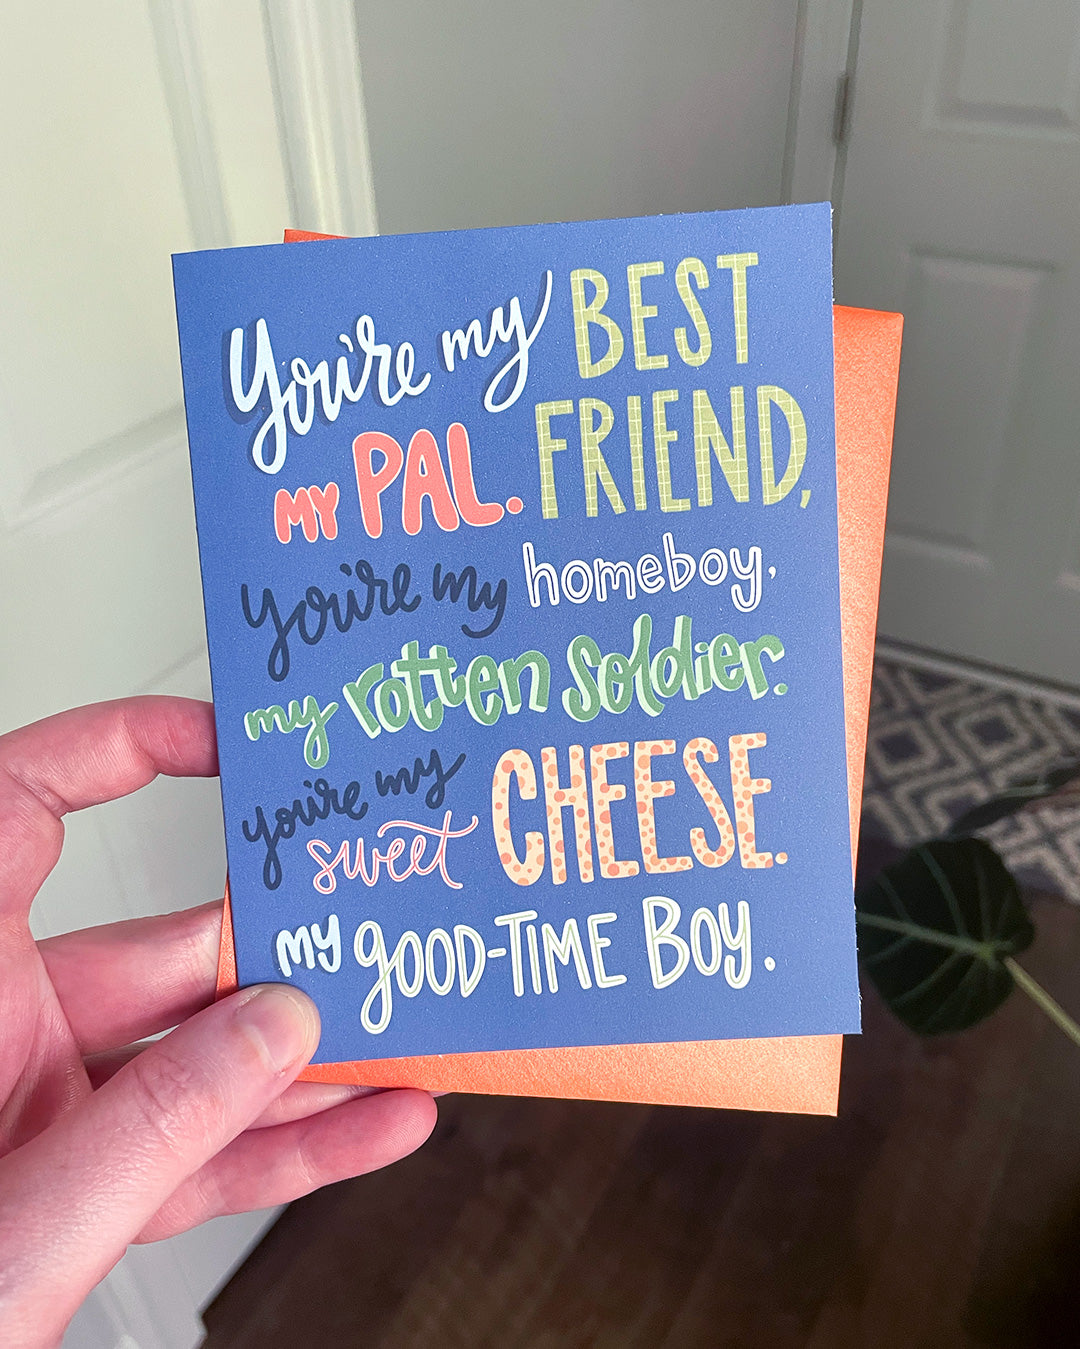 You're my BEST
FRIEND,
MY PAL.
You're my homeboy,
my rotten soldier.
you're my
sweet CHEESE.
MY gOOD-TIME BOY.